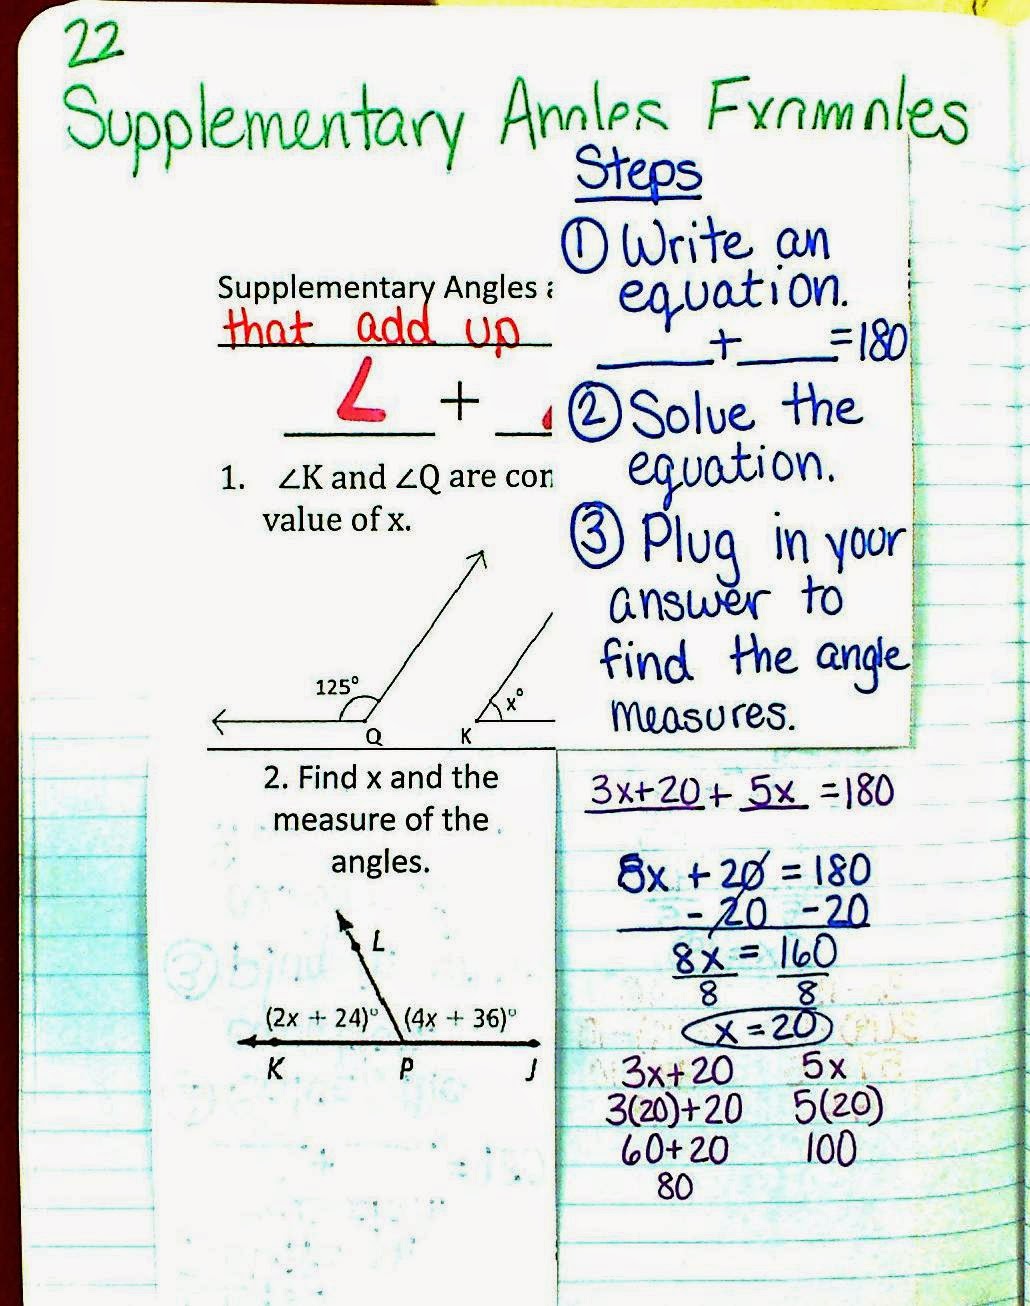 22
Supplementary Angles Examples
Supplementary Angles
that add up
∠ +
1. ∠K and ∠Q are
value of x.
125°
x°
Q
K
Steps
① Write an
equation.
____+____=180
② Solve the
equation.
③ Plug in your
answer to
find the angle
measures.
2. Find x and the
measure of the
angles.
L
(2x + 24)° (4x + 36)°
K P J
3x+20 + 5x =180
8x + 20 = 180
- 20 -20
8x = 160
8 8
x = 20
3x+20 5x
3(20)+20 5(20)
60+20 100
80